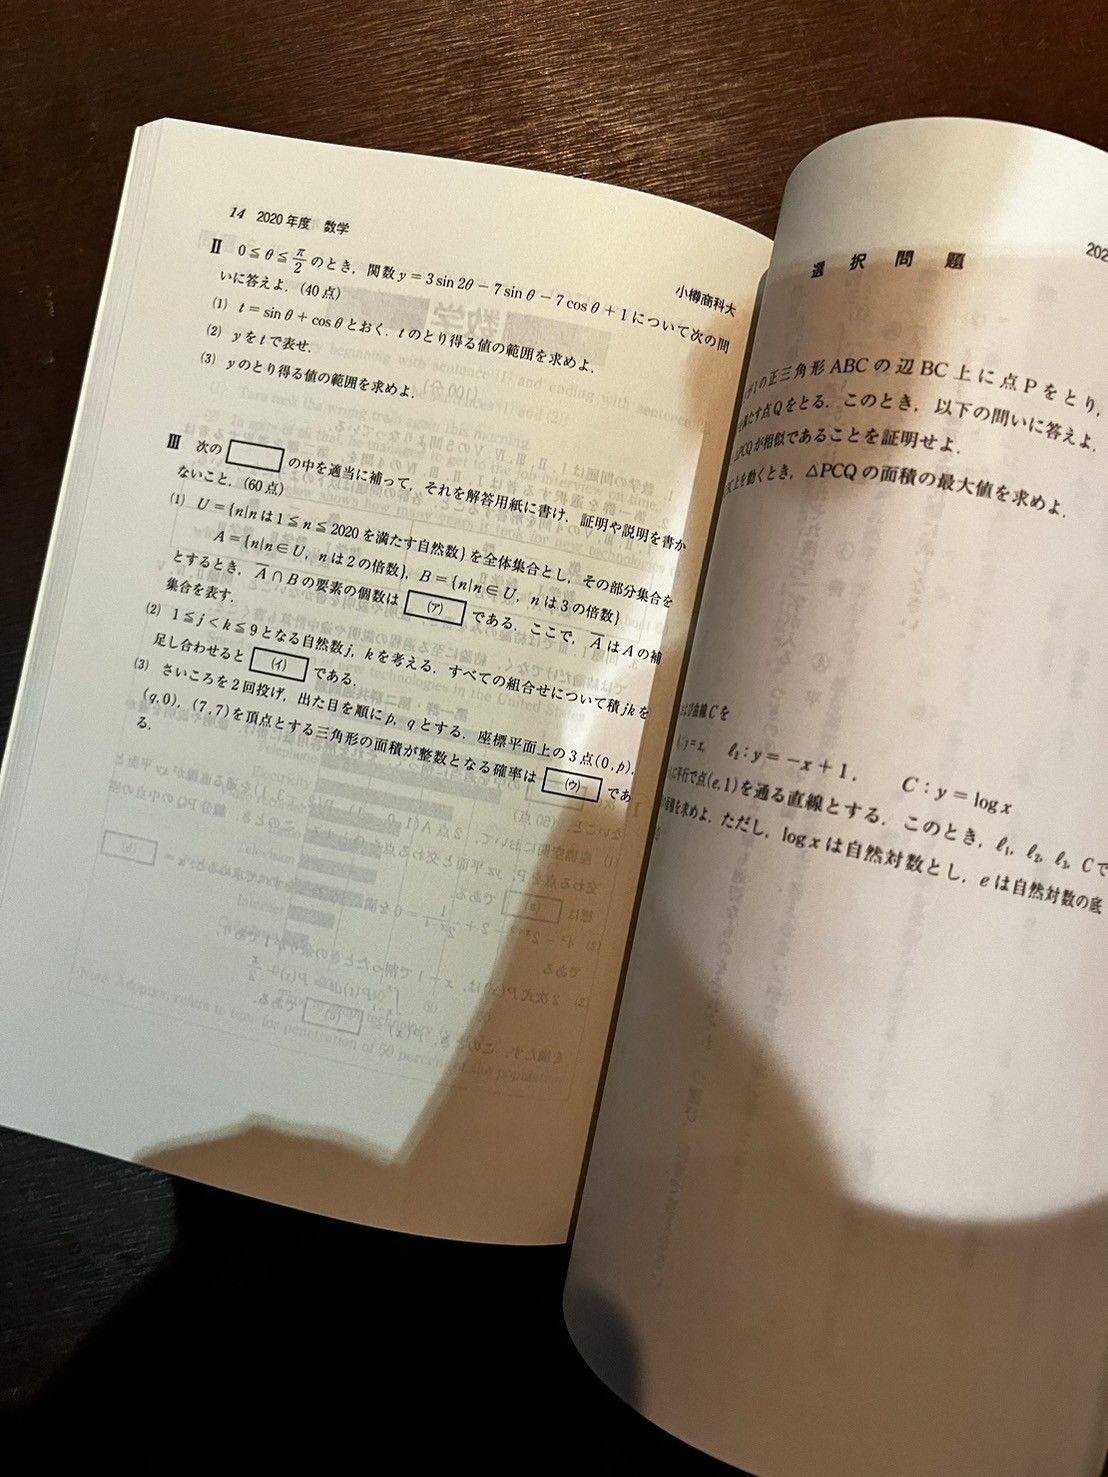 14 2020年度 数学
小樽商科大
Ⅱ 0≦θ≦π/2のとき，関数y＝3sin2θ－7sinθ－7cosθ＋1について次の問
いに答えよ．(40点)
(1) t＝sinθ＋cosθとおく．tのとり得る値の範囲を求めよ．
(2) yをtで表せ．
(3) yのとり得る値の範囲を求めよ．
Ⅲ 次の の中を適当に補って，それを解答用紙に書け．証明や説明を書か
ないこと．(60点)
(1) U＝{n|nは1≦n≦2020を満たす自然数}を全体集合とし，その部分集合を
A＝{n|n∈U，nは2の倍数}，B＝{n|n∈U，nは3の倍数}
とするとき，A̅∩Bの要素の個数は (ア) である．ここで，A̅はAの補
集合を表す．
(2) 1≦j＜k≦9となる自然数j，kを考える．すべての組合せについて積jkを
足し合わせると (イ) である．
(3) さいころを2回投げ，出た目を順にp，qとする．座標平面上の3点(0,p)，
(q,0)，(7,7)を頂点とする三角形の面積が整数となる確率は (ウ) であ
る．
202
選択問題
の正三角形ABCの辺BC上に点Pをとり，
たす点Qをとる．このとき，以下の問いに答えよ．
PCQが相似であることを証明せよ．
上を動くとき，△PCQの面積の最大値を求めよ．
および曲線Cを
y＝x， ℓ₂：y＝－x＋1， C：y＝logx
に平行で点(e,1)を通る直線とする．このとき，ℓ₁，ℓ₂，ℓ₃，Cで
を求めよ．ただし，logxは自然対数とし，eは自然対数の底